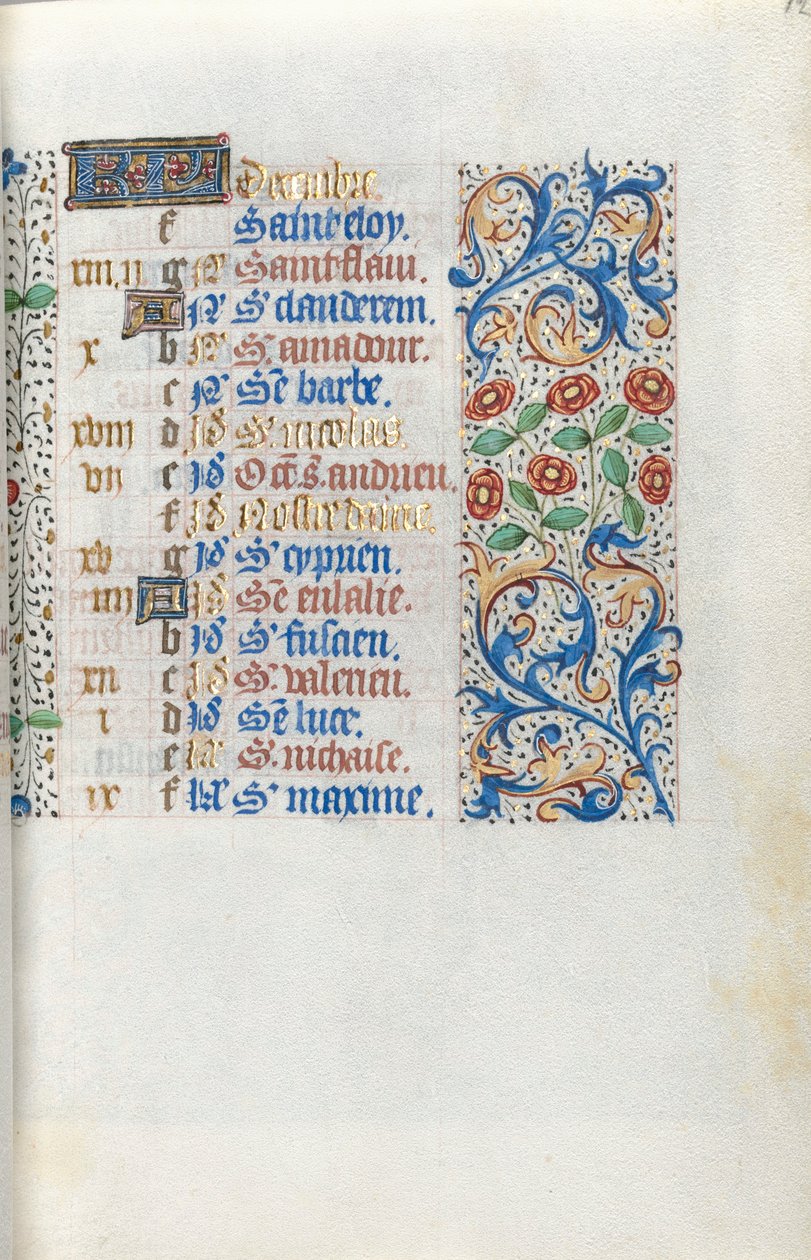 12
KL Decembre.
f Saint eloy.
xiii.ii g N Saint flaui.
A N S clauderem.
x b N S. amadour.
c N Se barbe.
xviii d Id S. nicolas.
vii e Id Oct S. andrieu.
f Id Nostre dame.
xv g Id S cyprien.
iiii A Id Se eulalie.
b Id S fuscien.
xii c Id S. valerien.
i d Id Se luce.
e S. nichaise.
ix f kl S maxime.